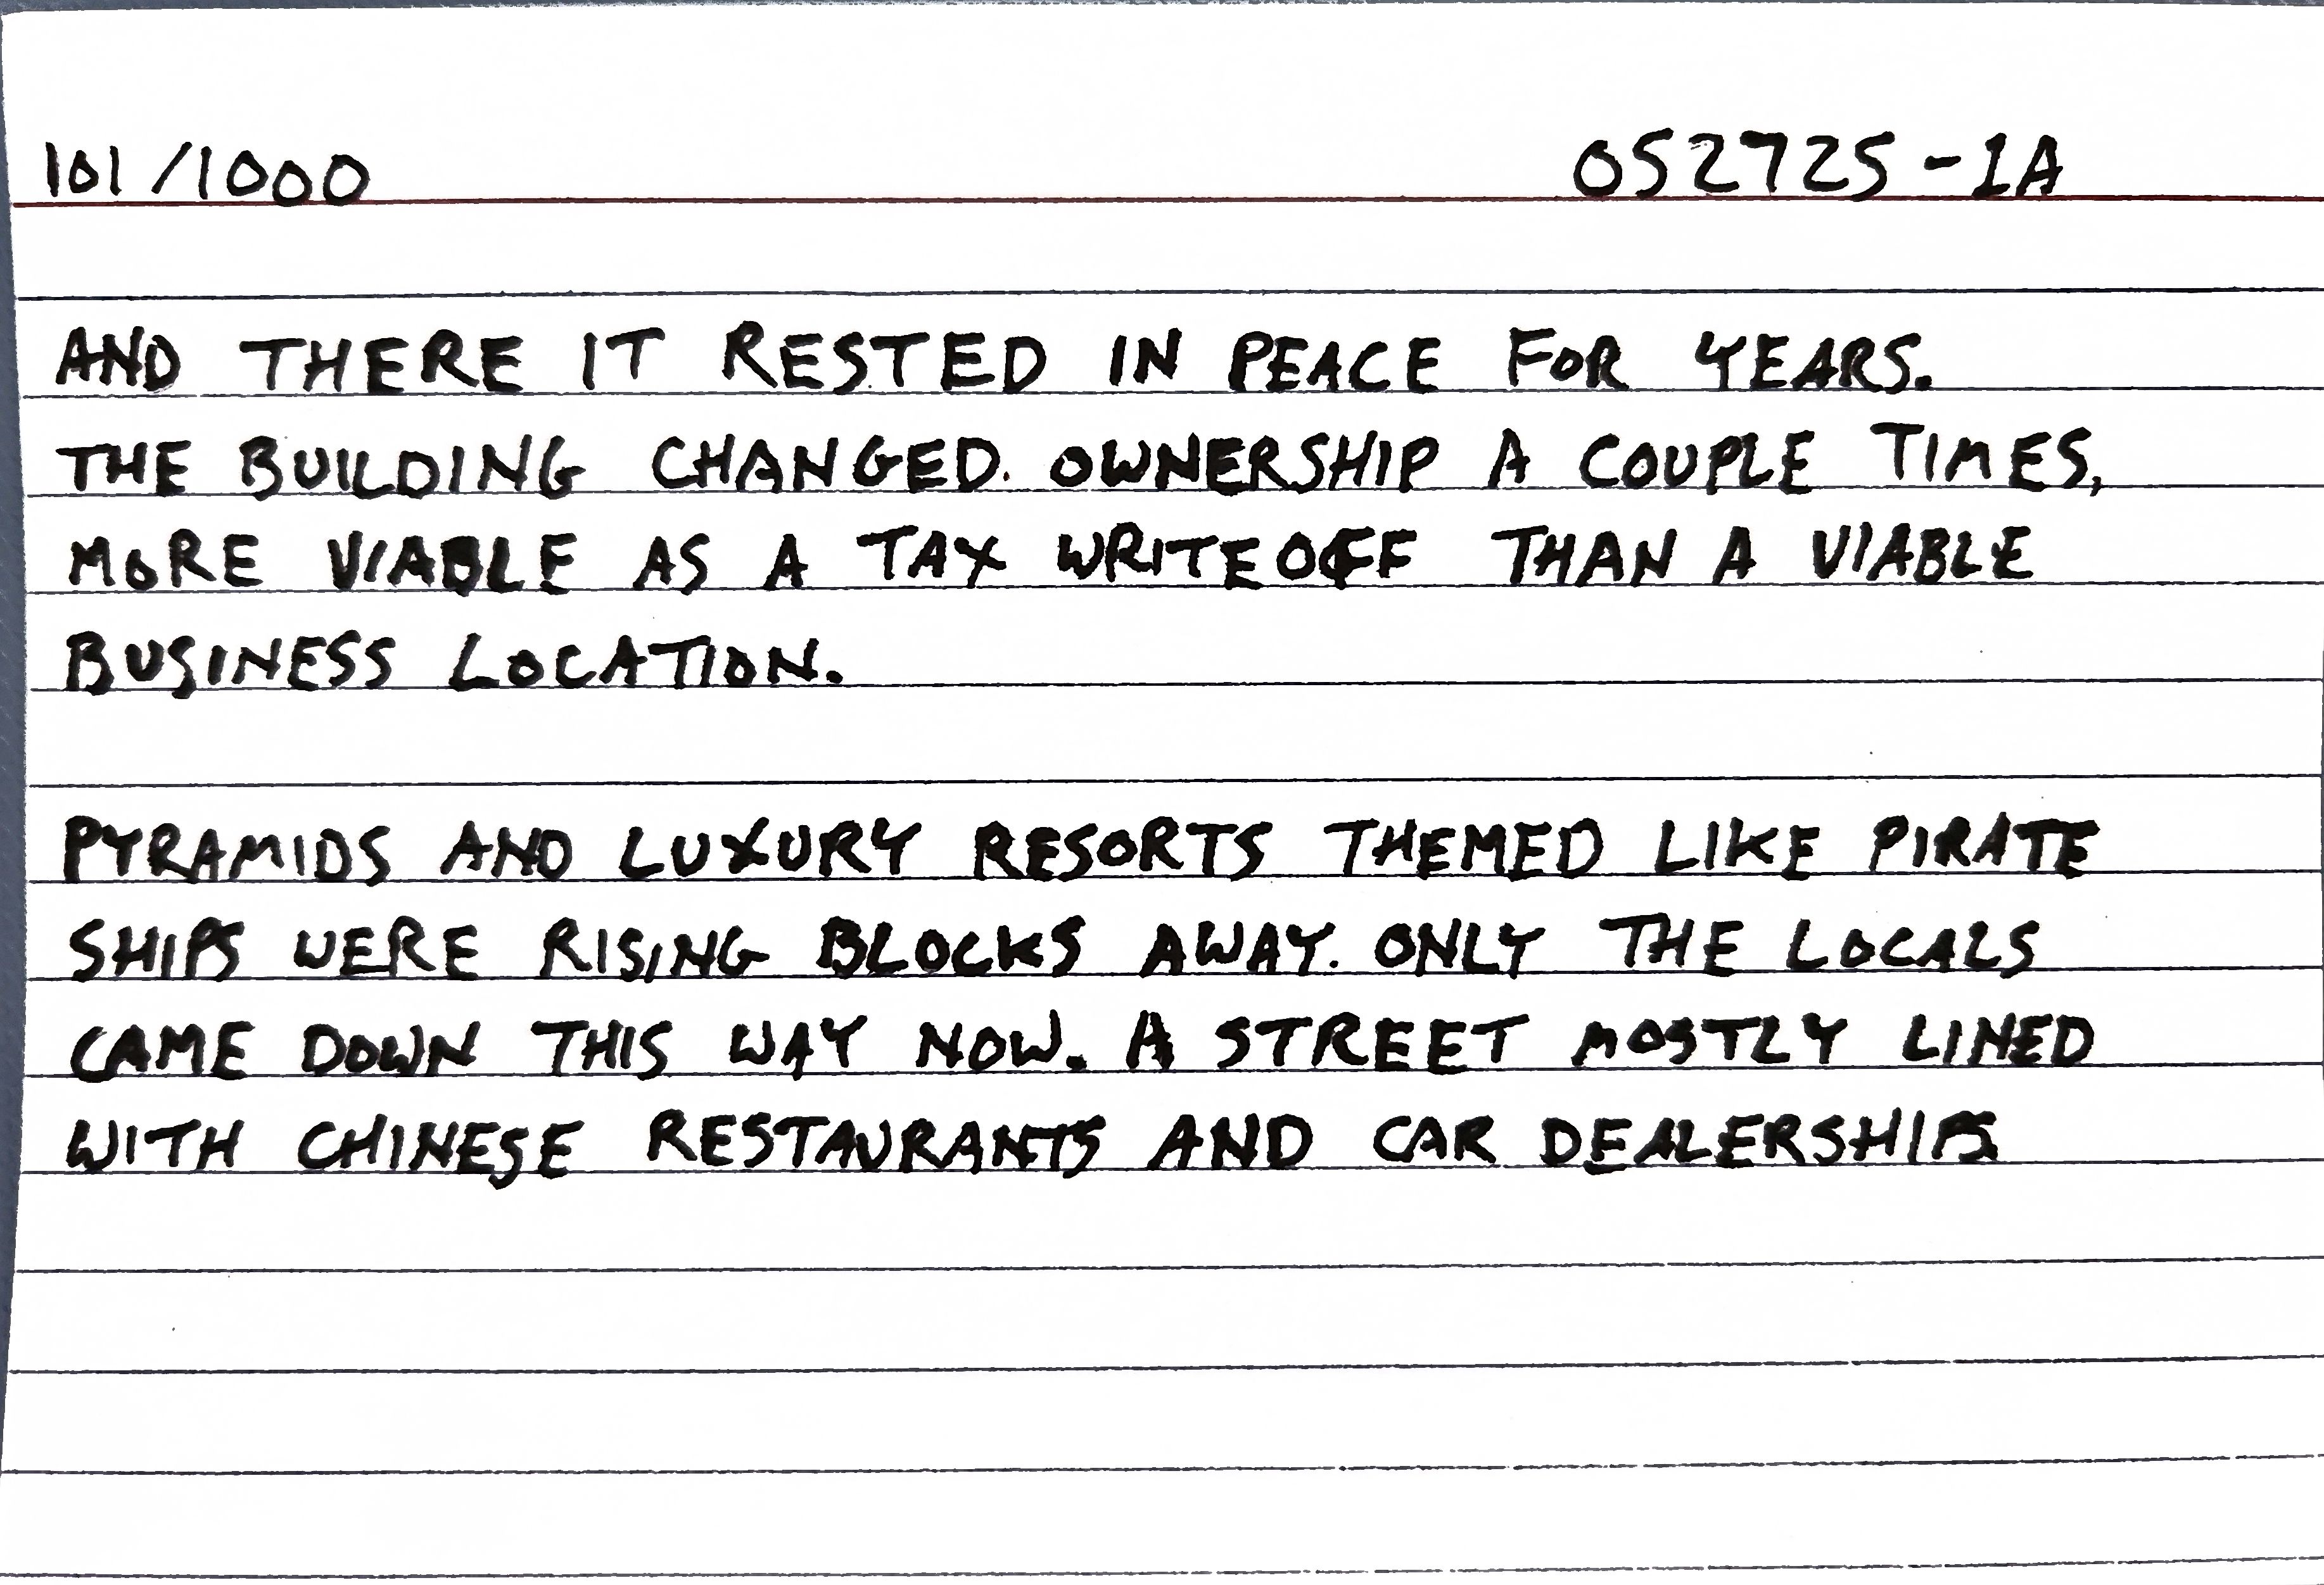 101/1000 052725-1A
AND THERE IT RESTED IN PEACE FOR YEARS.
THE BUILDING CHANGED. OWNERSHIP A COUPLE TIMES,
MORE VIABLE AS A TAX WRITEOFF THAN A VIABLE
BUSINESS LOCATION.
PYRAMIDS AND LUXURY RESORTS THEMED LIKE PIRATE
SHIPS WERE RISING BLOCKS AWAY. ONLY THE LOCALS
CAME DOWN THIS WAY NOW. A STREET MOSTLY LINED
WITH CHINESE RESTAURANTS AND CAR DEALERSHIPS